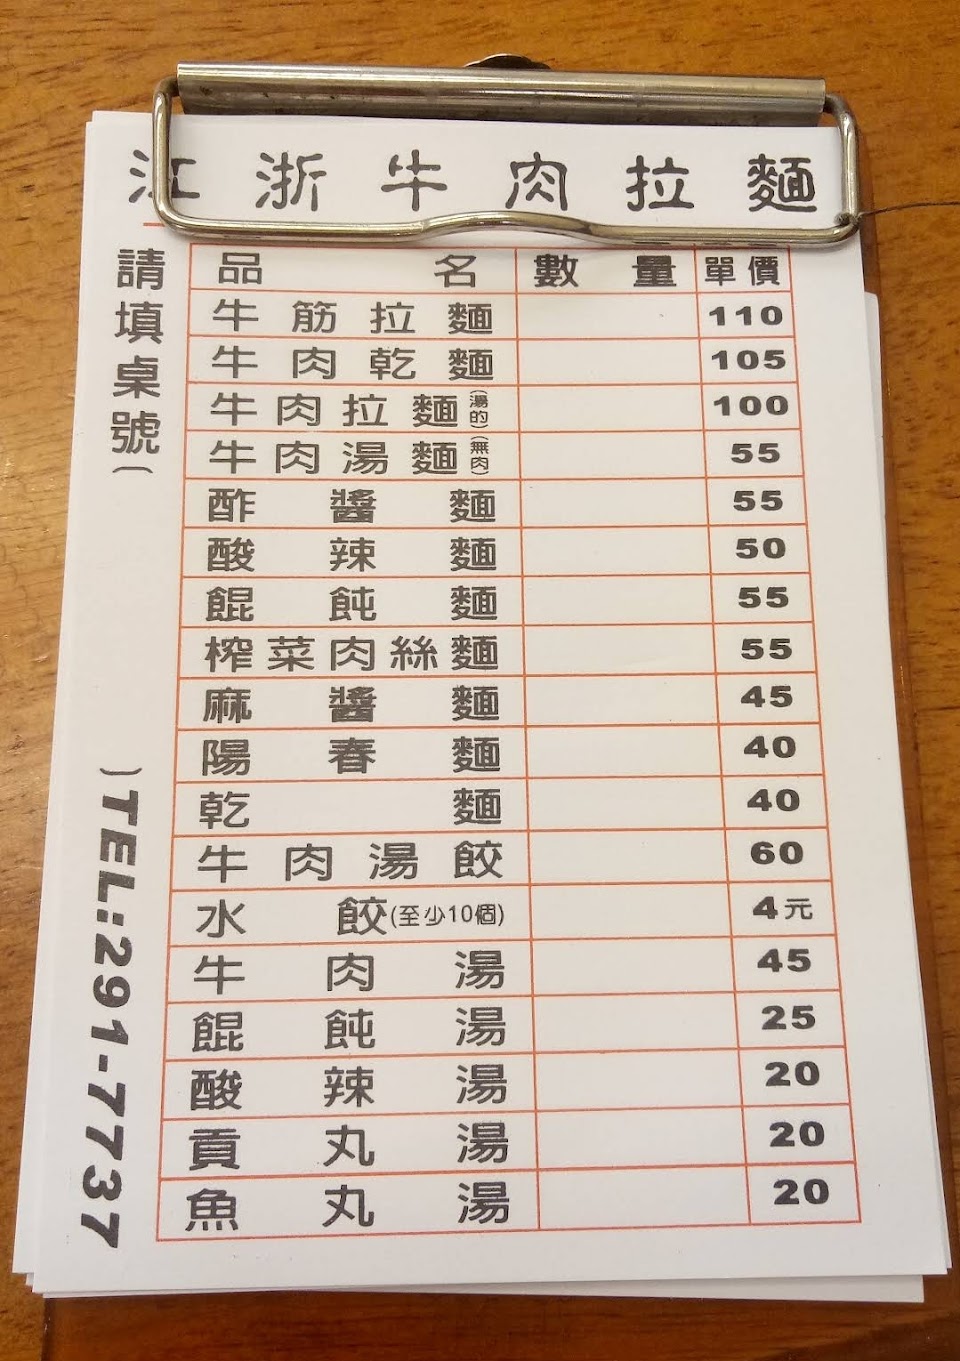 江浙牛肉拉麵
請填桌號( )TEL:291-7737
品名 數量 單價
牛筋拉麵 110
牛肉乾麵 105
牛肉拉麵(湯的) 100
牛肉湯麵(無肉) 55
酢醬麵 55
酸辣麵 50
餛飩麵 55
榨菜肉絲麵 55
麻醬麵 45
陽春麵 40
乾麵 40
牛肉湯餃 60
水餃(至少10個) 4元
牛肉湯 45
餛飩湯 25
酸辣湯 20
貢丸湯 20
魚丸湯 20